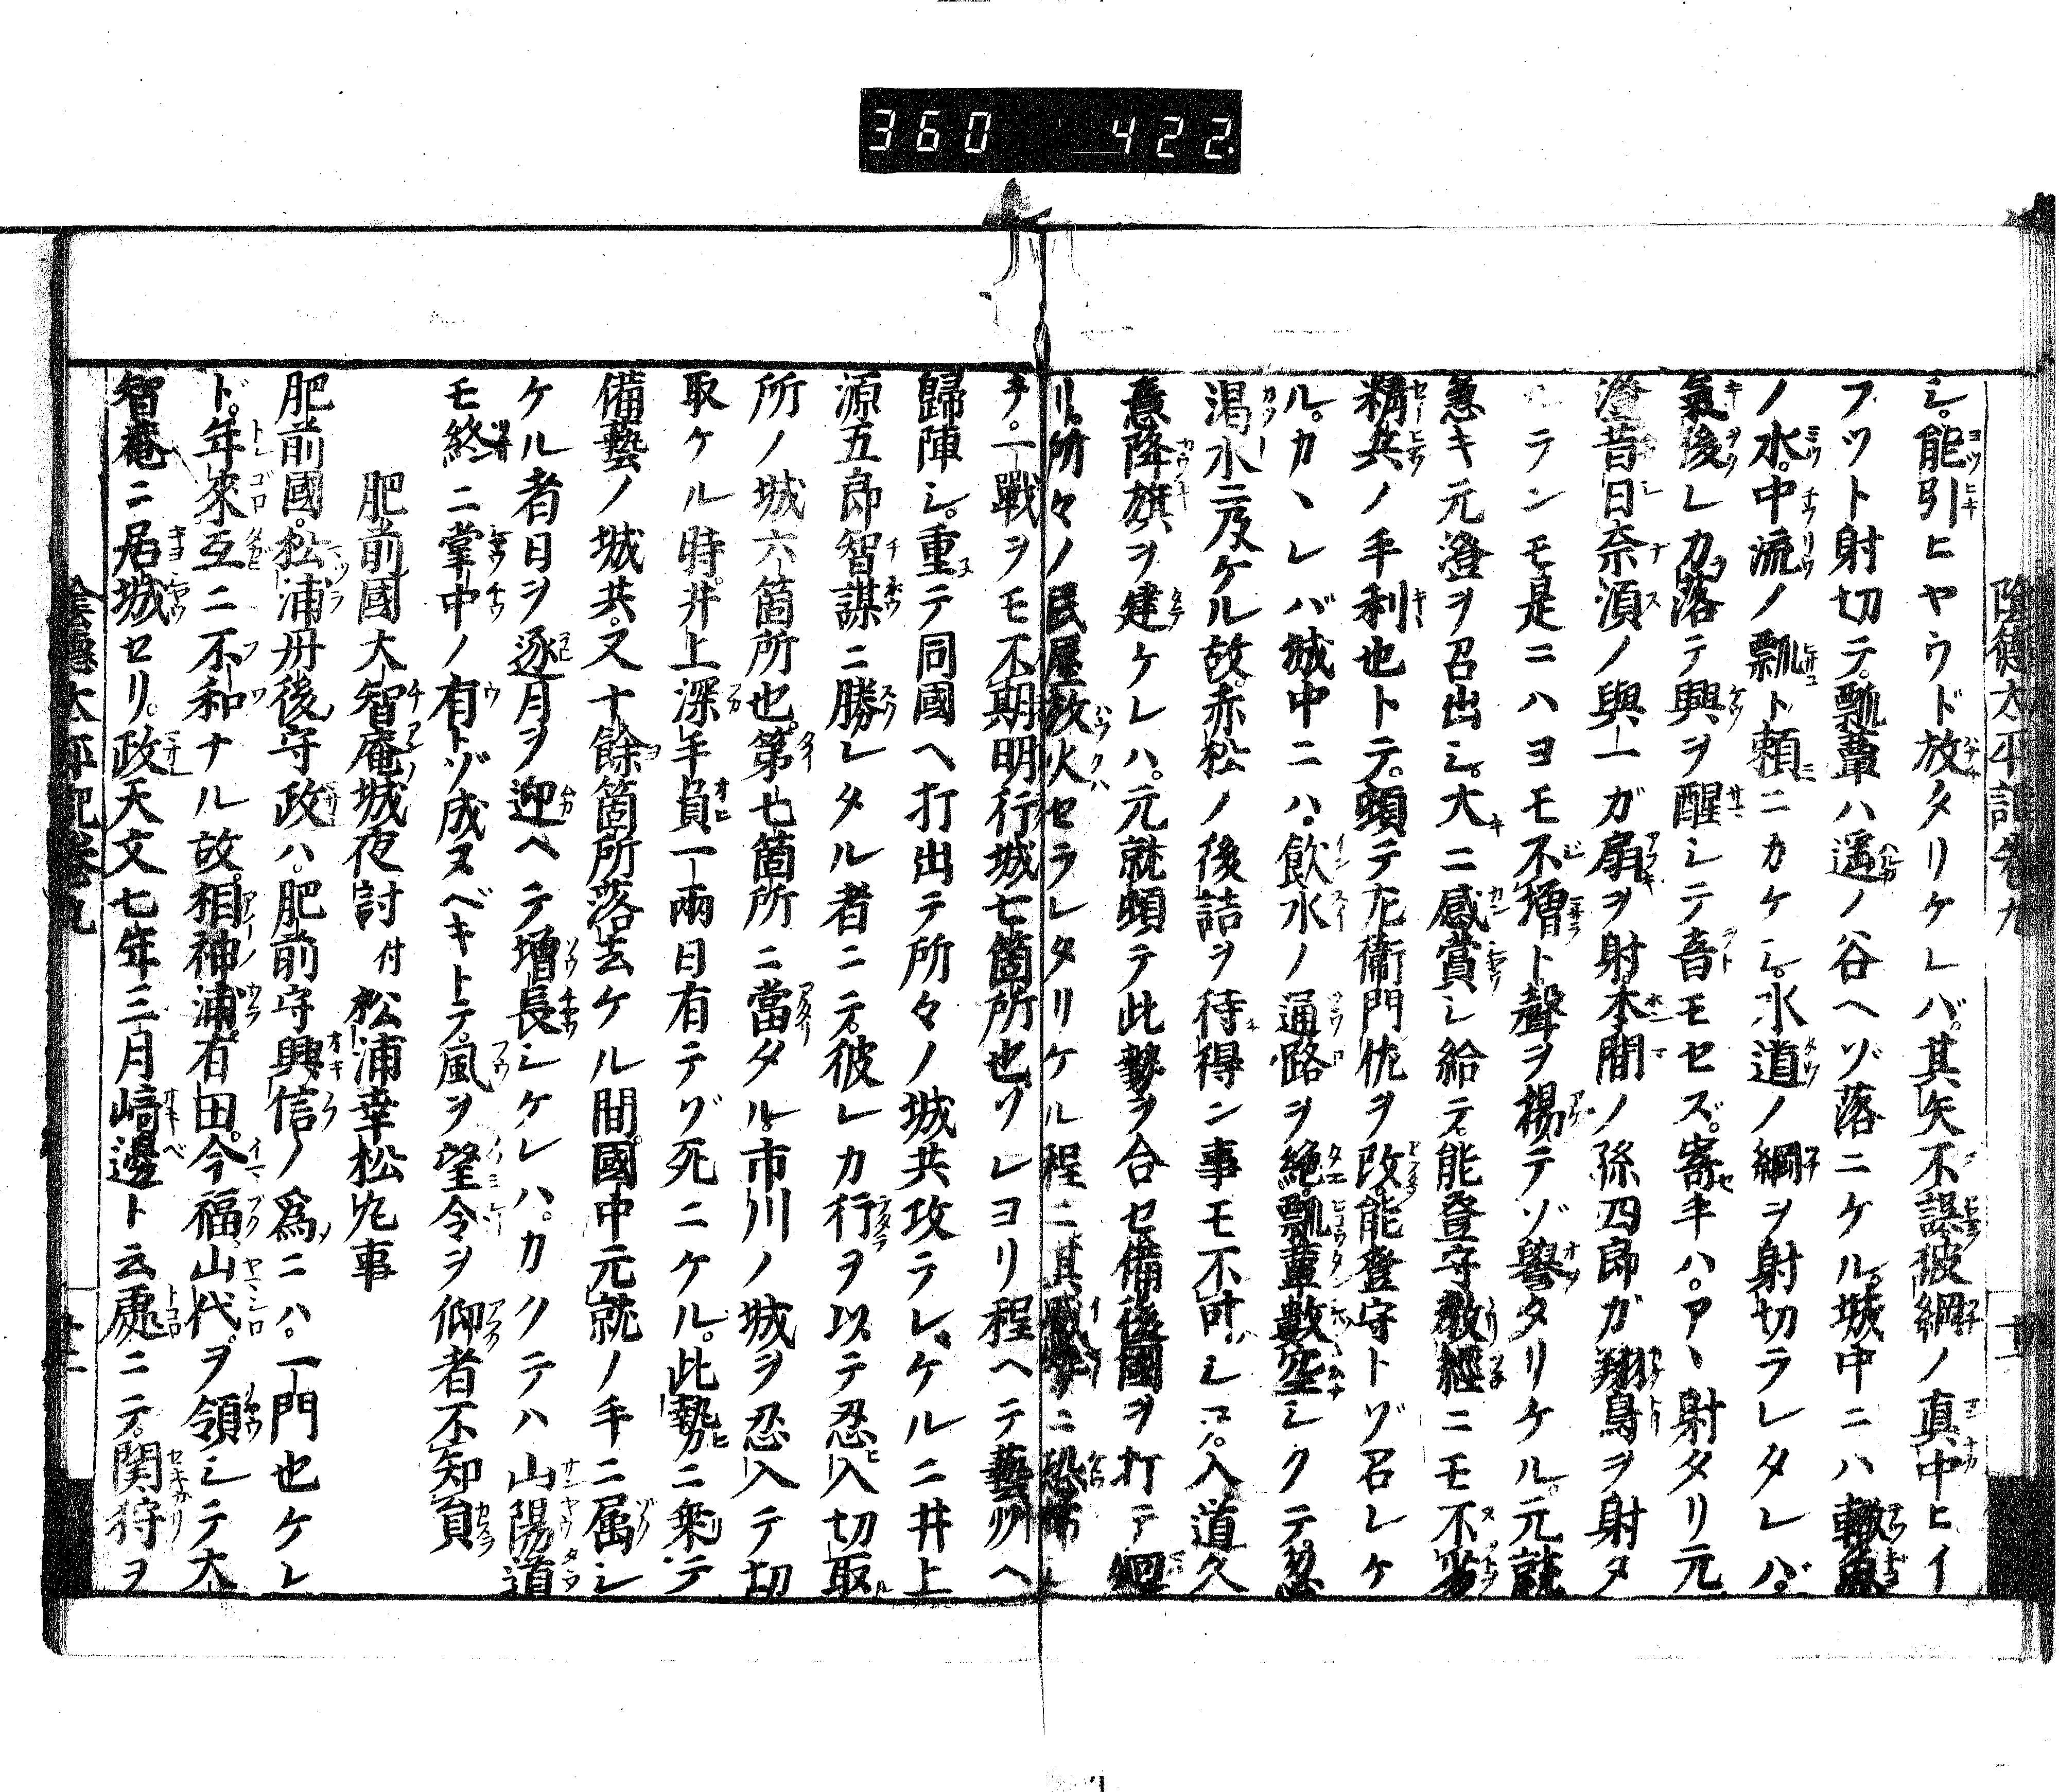 360 422.
陰徳太平記巻九
シ。能引ヒヤウド放タリケレバ。其矢不誤彼綱ノ真中ヒイ
フツト射切テ。瓢䔕ハ遥ノ谷ヘゾ落ニケル。城中ニハ轍魚
ノ水。中流ノ瓢ト頼ニカケシ。水道ノ綱ヲ射切ラレタレバ。
氣後レカ落テ興ヲ醒シテ音モセズ。寄手ハ。アヽ射タリ元
澄昔日奈須ノ與一ガ扇ヲ射本間ノ孫四郎ガ翔鳥ヲ射タ
ランモ是ニハヨモ不増ト聲ヲ揚テゾ譽タリケル。元就
急キ元澄ヲ召出シ。大ニ感賞シ給テ。能登守教經ニモ不劣
精兵ノ手利也トテ。頓テ左衛門佐ヲ改。能登守トゾ召レケ
ル。カヽレバ城中ニハ。飲水ノ通路ヲ絶。瓢䔕數空シクテ。忽
渇水ニ及ケル故。赤松ノ後詰ヲ待得ン事モ不可レ叶。入道久
意降旗ヲ建ケレハ。元就頓テ此勢ヲ合セ備後國ヲ打テ廻
リ。所々ノ民屋放火セラレタリケル程ニ其威勢ニ恐怖シ
テ。一戰ヲモ不期明行城七箇所也。ソレヨリ程ヘテ藝州ヘ
歸陣シ。重テ同國ヘ打出テ所々ノ城共攻ラレケルニ井上
源五郎智謀ニ勝レタル者ニテ。彼レカ行ヲ以テ忍入切取
所ノ城六箇所也。第七箇所ニ當タル。市川ノ城ヲ忍入テ切
取ケル時。井上深手負一兩日有テゾ死ニケル。此勢ニ乘テ
備藝ノ城共。又十餘箇所落去ケル間。國中元就ノ手ニ属シ
ケル者日ヲ逐月ヲ迎ヘテ増長シケレハ。カクテハ山陽道
モ終ニ掌中ノ有トゾ成ヌベキトテ。風ヲ望令ヲ仰者不知員
肥前國大智庵城夜討付松浦幸松丸事
肥前國。松浦丹後守政ハ。肥前守興信ノ爲ニハ。一門也ケレ
ド。年來互ニ不和ナル故。相神浦。有田。今福。山代。ヲ領シテ大
智庵ニ居城セリ。政天文七年三月﨑邊ト云處ニテ。関狩ヲ
陰徳太平記巻九